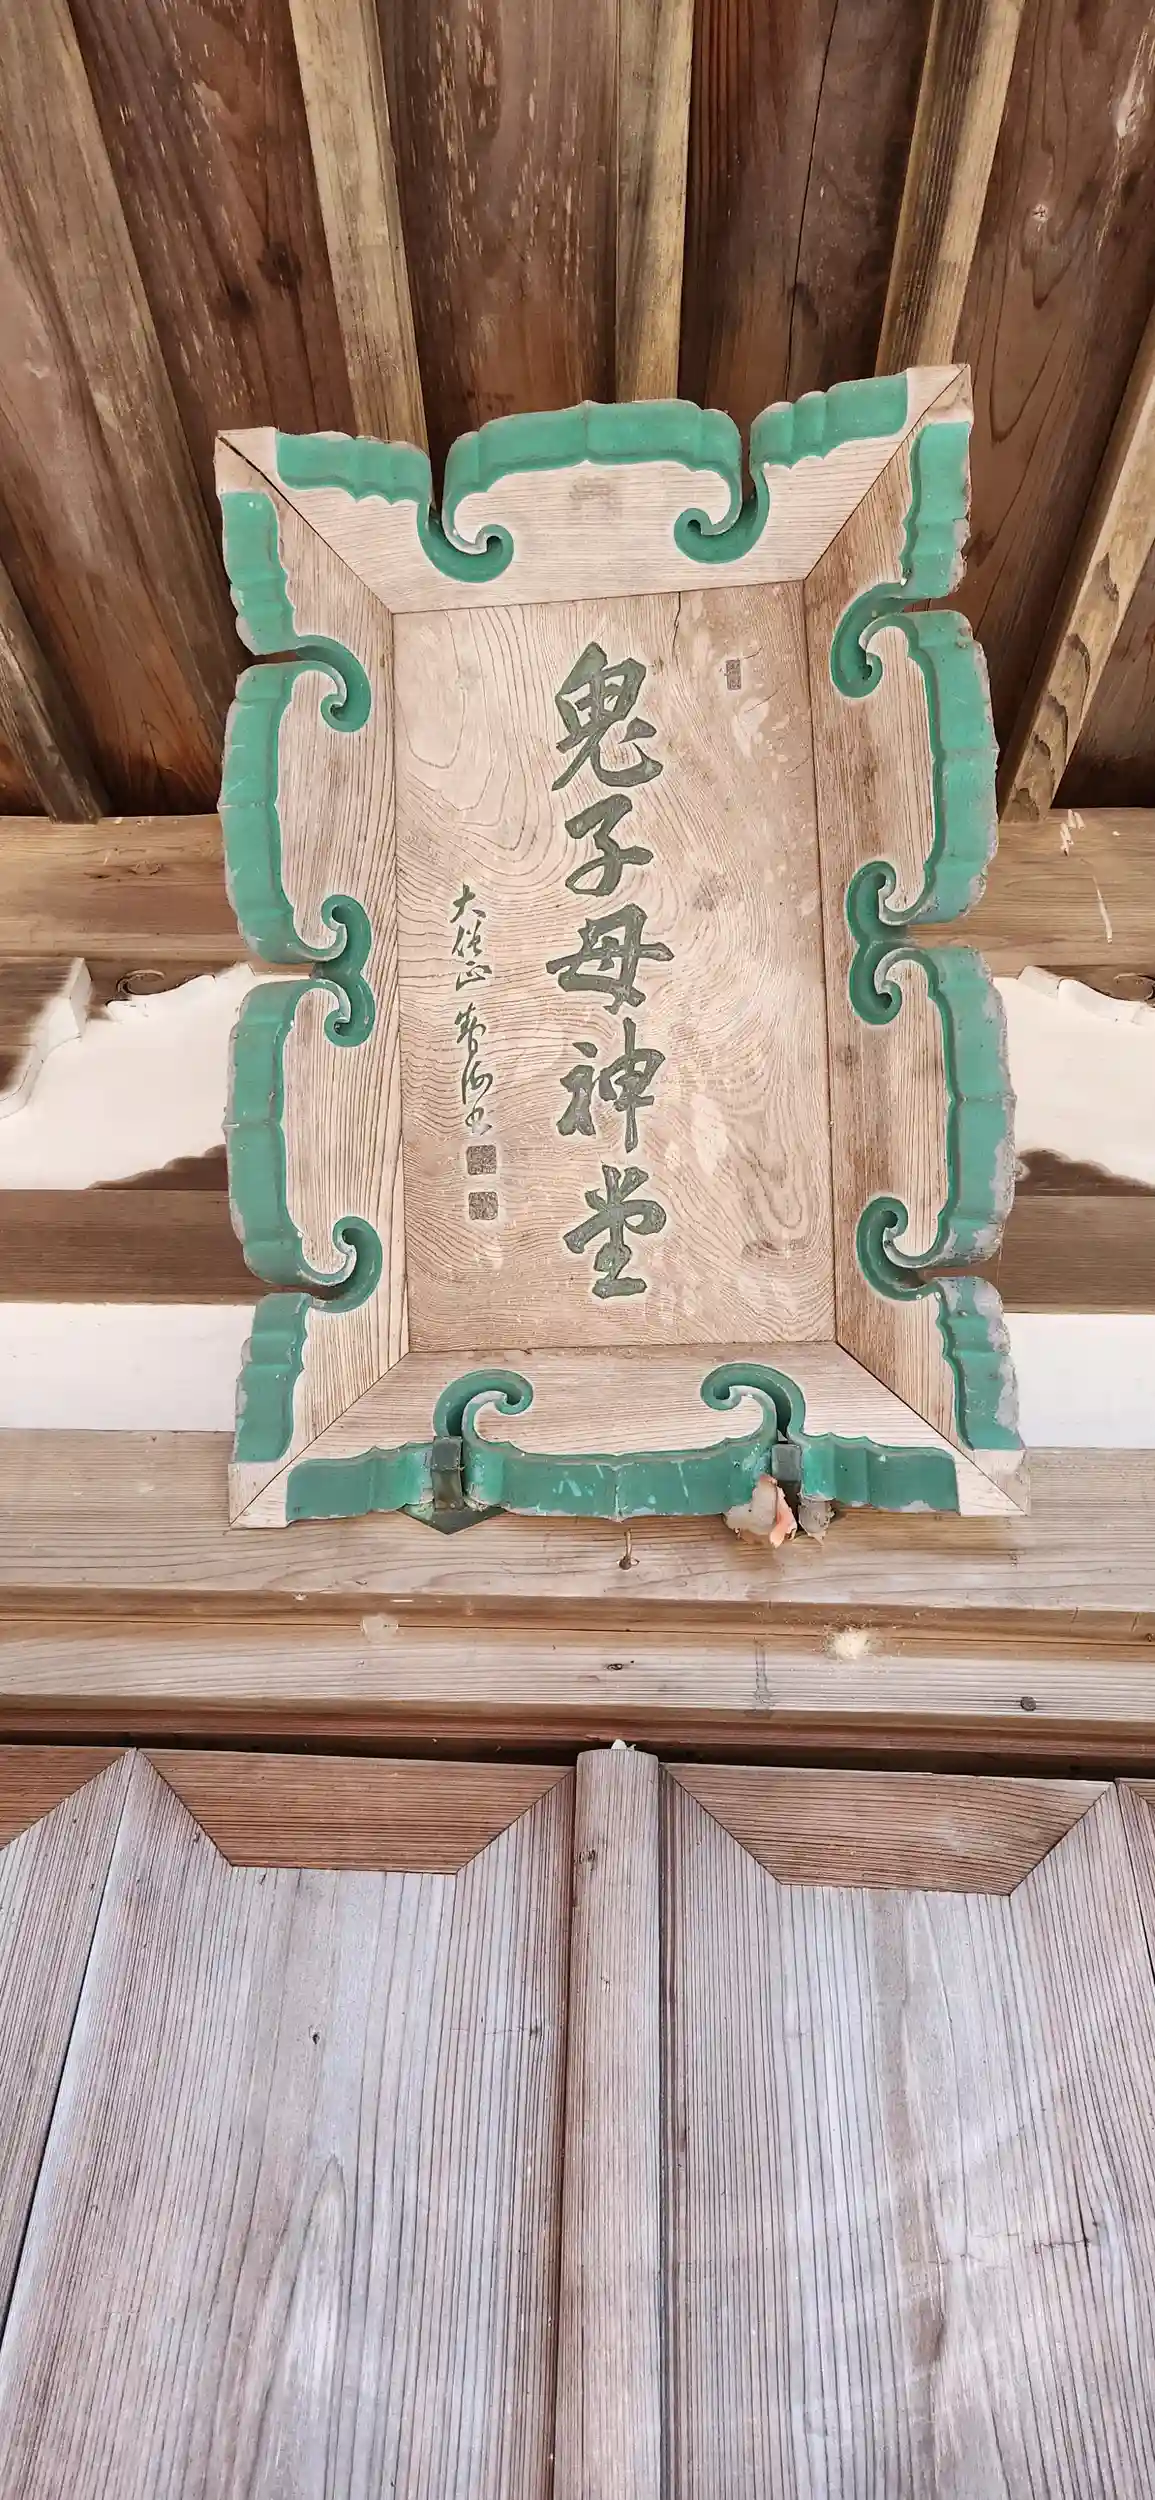 鬼子母神堂
大僧正